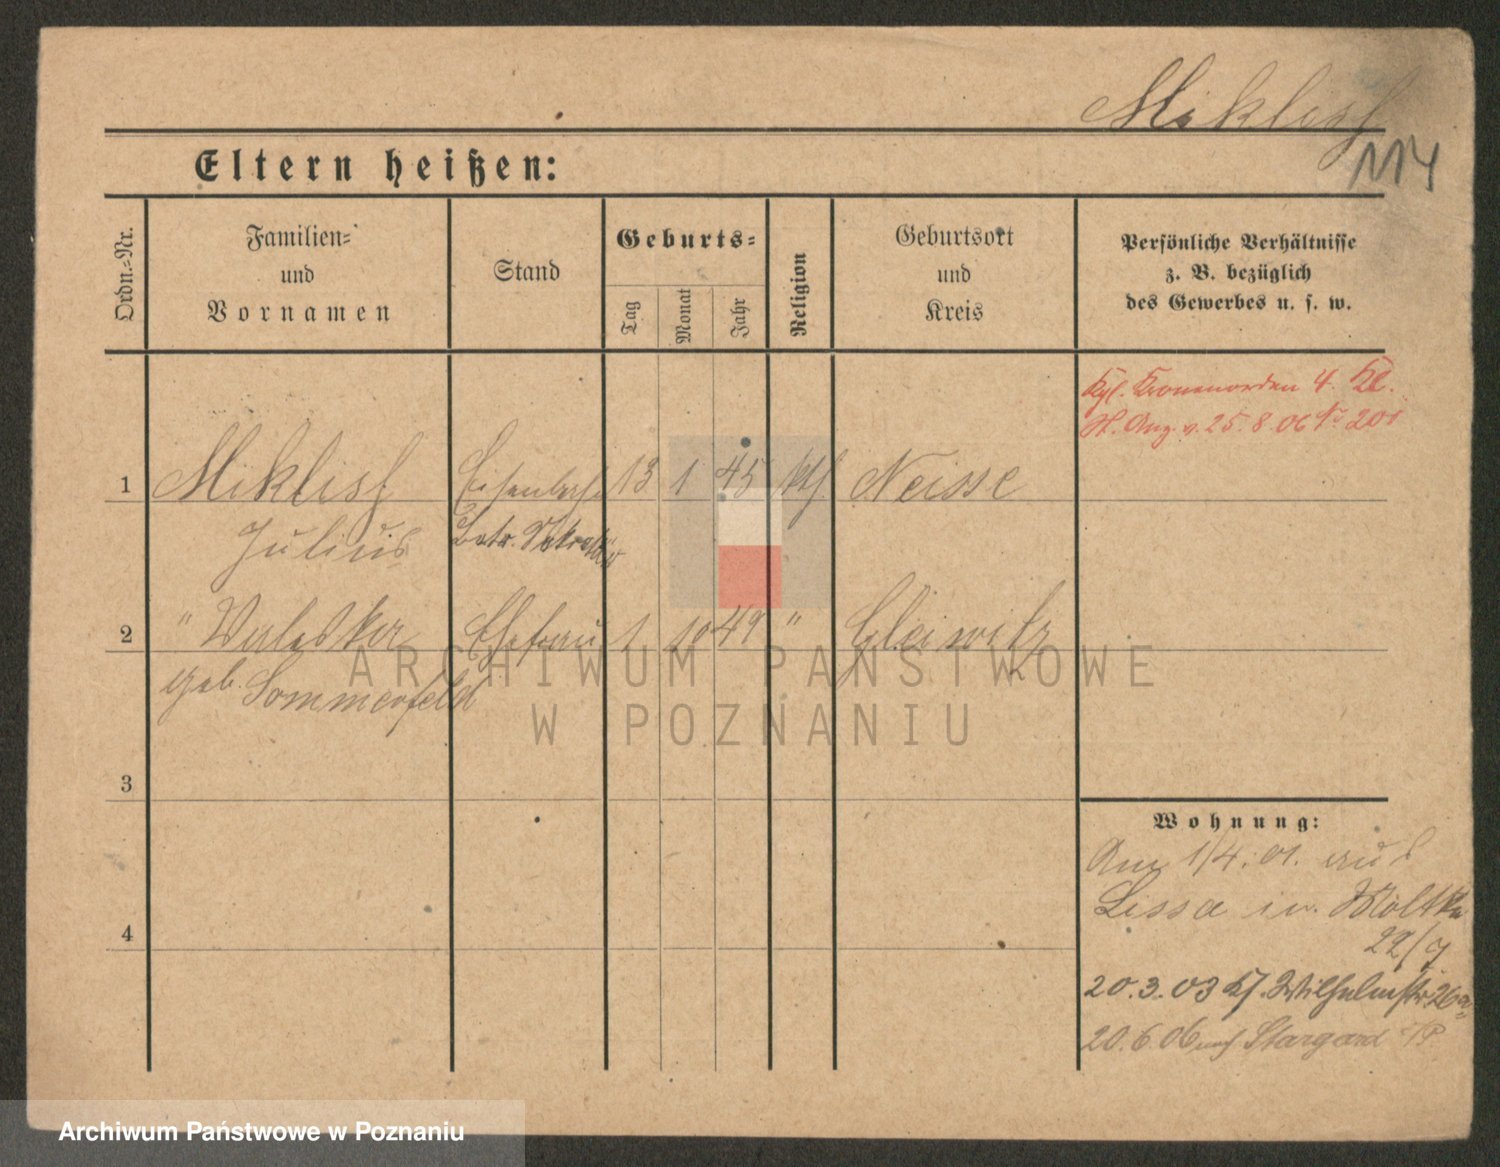 Miklisch
114
Eltern heißen:
Ordn.-Nr.
Familien-
und
Vornamen
Stand
Geburts-
Tag
Monat
Jahr
Religion
Geburtsort
und
Kreis
Persönliche Verhältnisse
z. B. bezüglich
des Gewerbes u. s. w.
Kgl. Kronenorden 4. Kl.
St. Anz. v. 25.8.06 No 201
1 Miklisch Eisenbahn 13 1 45 kth. Neisse
Julius Betr. Sekretär
2 " Valeska Ehefrau 1 10 49 " Gleiwitz
geb. Sommerfeld
3
4
Wohnung:
Am 1/4.01. aus
Lissa in. Moltke
22/7
20.3.03 Wilhelmstr. 26a
20.6.06 nach Stargard i/P
ARCHIWUM PAŃSTWOWE
W POZNANIU
Archiwum Państwowe w Poznaniu